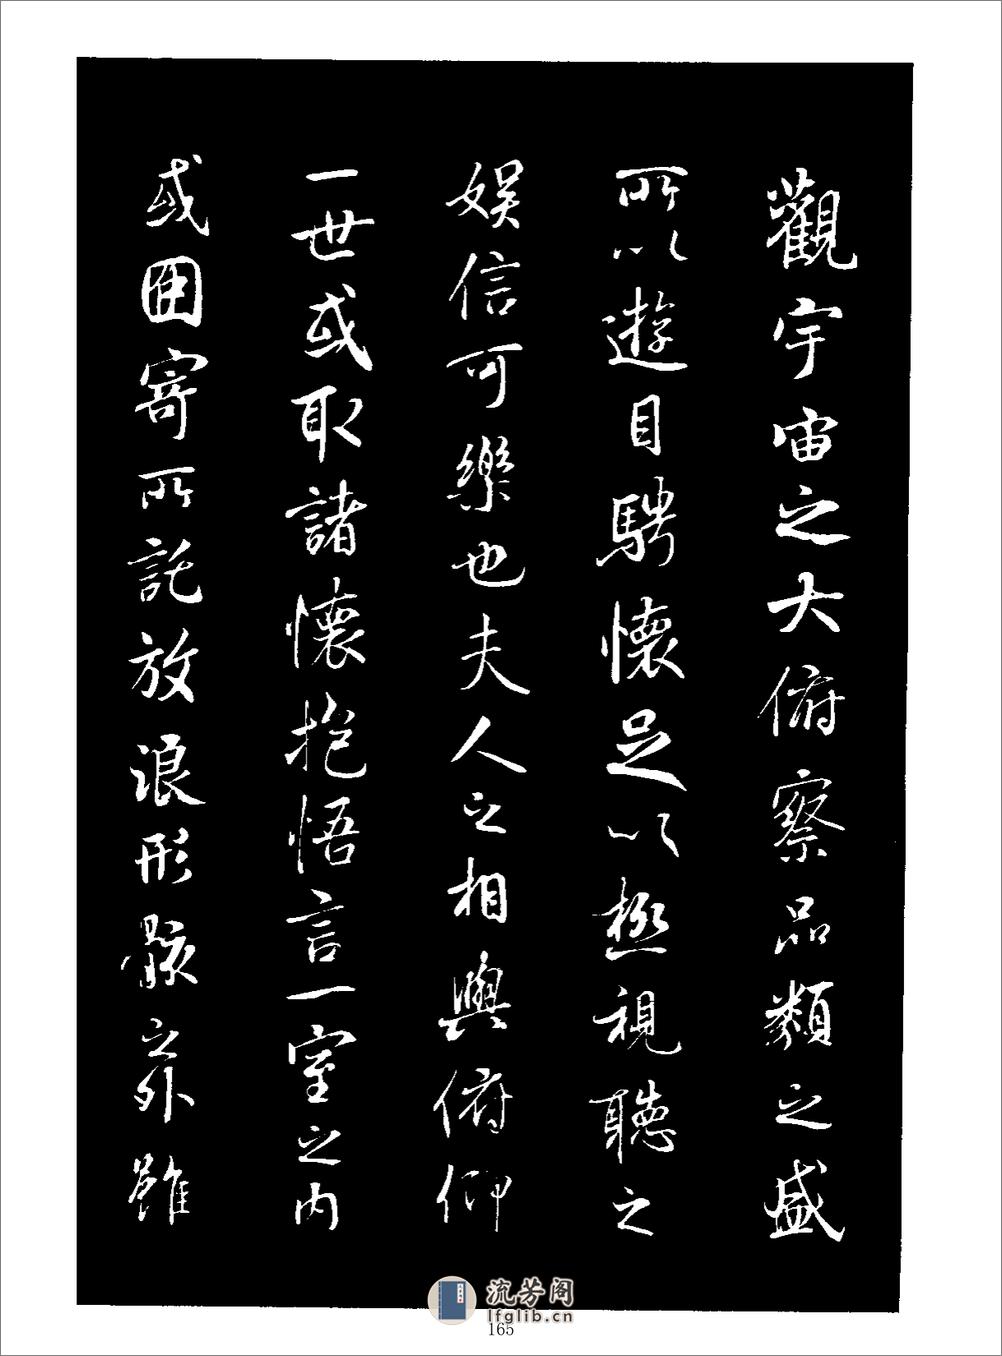 觀宇宙之大俯察品類之盛
所以遊目騁懷足以極視聽之
娛信可樂也夫人之相與俯仰
一世或取諸懷抱悟言一室之內
或因寄所託放浪形骸之外雖
流芳阁
lfglib.cn
165